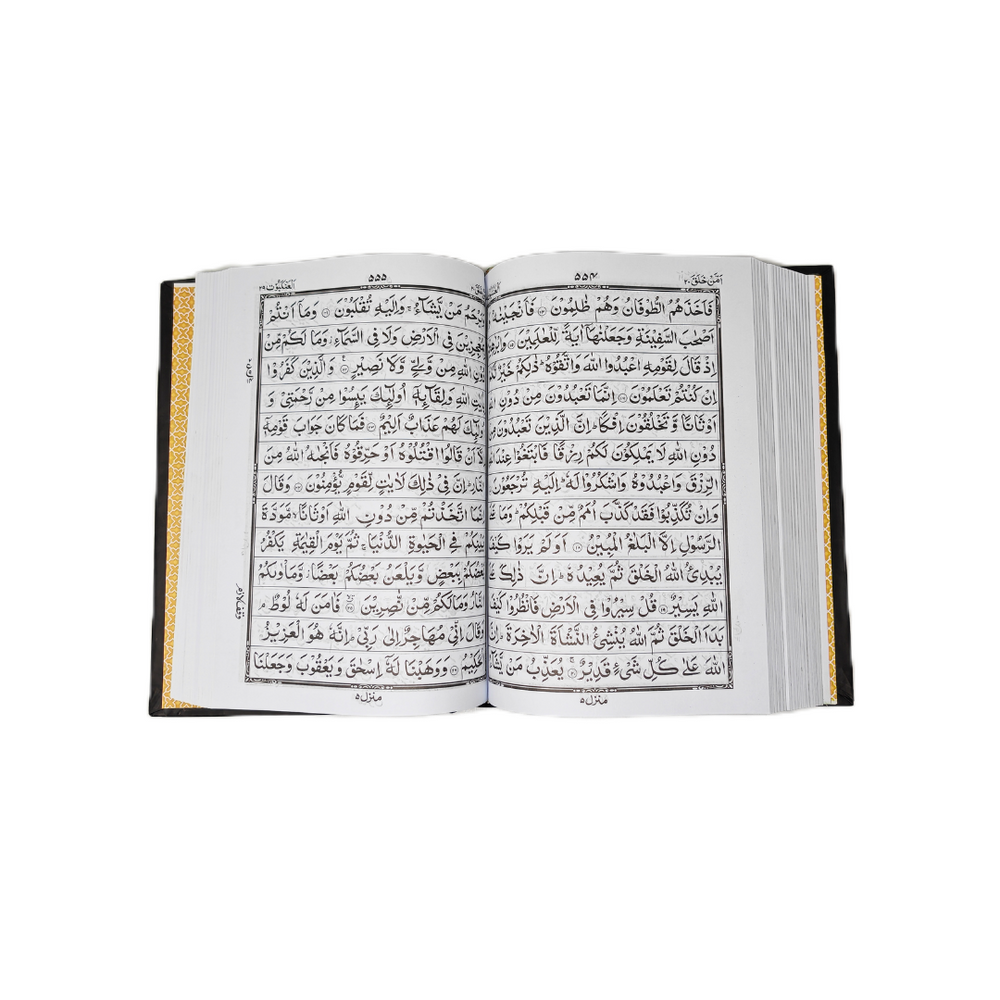 اَمَّنْ خَلَقَ ٢٠
٥٥٤
فَاَخَذَهُمُ الطُّوْفَانُ وَهُمْ ظٰلِمُوْنَ ﴿١٤﴾ فَاَنْجَيْنٰهُ
اَصْحٰبَ السَّفِيْنَةِ وَجَعَلْنٰهَاۤ اٰيَةً لِّلْعٰلَمِيْنَ ﴿١٥﴾
اِذْ قَالَ لِقَوْمِهِ اعْبُدُوا اللّٰهَ وَاتَّقُوْهُ ؕ ذٰلِكُمْ خَيْرٌ
اِنْ كُنْتُمْ تَعْلَمُوْنَ ﴿١٦﴾ اِنَّمَا تَعْبُدُوْنَ مِنْ دُوْنِ
اَوْثَانًا وَّ تَخْلُقُوْنَ اِفْكًا ؕ اِنَّ الَّذِيْنَ تَعْبُدُوْنَ
دُوْنِ اللّٰهِ لَا يَمْلِكُوْنَ لَكُمْ رِزْقًا فَابْتَغُوْا عِنْدَ
الرِّزْقَ وَاعْبُدُوْهُ وَاشْكُرُوْا لَهٗ ؕ اِلَيْهِ تُرْجَعُوْنَ
وَاِنْ تُكَذِّبُوْا فَقَدْ كَذَّبَ اُمَمٌ مِّنْ قَبْلِكُمْ ؕ وَمَا
الرَّسُوْلِ اِلَّا الْبَلٰغُ الْمُبِيْنُ ﴿١٨﴾ اَوَلَمْ يَرَوْا كَيْفَ
يُبْدِئُ اللّٰهُ الْخَلْقَ ثُمَّ يُعِيْدُهٗ ؕ اِنَّ ذٰلِكَ
اللّٰهِ يَسِيْرٌ ﴿١٩﴾ قُلْ سِيْرُوْا فِى الْاَرْضِ فَانْظُرُوْا كَيْفَ
بَدَاَ الْخَلْقَ ثُمَّ اللّٰهُ يُنْشِئُ النَّشْاَةَ الْاٰخِرَةَ ؕ اِنَّ
اللّٰهَ عَلٰى كُلِّ شَىْءٍ قَدِيْرٌ ﴿٢٠﴾ يُعَذِّبُ مَنْ يَّشَآءُ
منزل ٥
٥٥٥
العنكبوت ٢٩
وَيَرْحَمُ مَنْ يَّشَآءُ ۚ وَاِلَيْهِ تُقْلَبُوْنَ ﴿٢١﴾ وَمَاۤ اَنْتُمْ
بِمُعْجِزِيْنَ فِى الْاَرْضِ وَلَا فِى السَّمَآءِ وَمَا لَكُمْ مِّنْ
دُوْنِ اللّٰهِ مِنْ وَّلِىٍّ وَّلَا نَصِيْرٍ ﴿٢٢﴾ وَالَّذِيْنَ كَفَرُوْا
بِاٰيٰتِ اللّٰهِ وَلِقَآئِهٖۤ اُولٰٓئِكَ يَئِسُوْا مِنْ رَّحْمَتِىْ وَ
اُولٰٓئِكَ لَهُمْ عَذَابٌ اَلِيْمٌ ﴿٢٣﴾ فَمَا كَانَ جَوَابَ قَوْمِهٖۤ
اِلَّاۤ اَنْ قَالُوا اقْتُلُوْهُ اَوْ حَرِّقُوْهُ فَاَنْجٰىهُ اللّٰهُ مِنَ
النَّارِ ؕ اِنَّ فِىْ ذٰلِكَ لَاٰيٰتٍ لِّقَوْمٍ يُّؤْمِنُوْنَ ﴿٢٤﴾ وَقَالَ
اِنَّمَا اتَّخَذْتُمْ مِّنْ دُوْنِ اللّٰهِ اَوْثَانًا ۙ مَّوَدَّةَ
بَيْنِكُمْ فِى الْحَيٰوةِ الدُّنْيَا ۚ ثُمَّ يَوْمَ الْقِيٰمَةِ يَكْفُرُ
بَعْضُكُمْ بِبَعْضٍ وَّيَلْعَنُ بَعْضُكُمْ بَعْضًا ؗ وَّمَاْوٰىكُمُ
النَّارُ وَمَا لَكُمْ مِّنْ نّٰصِرِيْنَ ﴿٢٥﴾ فَاٰمَنَ لَهٗ لُوْطٌ ۘ
وَقَالَ اِنِّىْ مُهَاجِرٌ اِلٰى رَبِّىْ ؕ اِنَّهٗ هُوَ الْعَزِيْزُ
الْحَكِيْمُ ﴿٢٦﴾ وَوَهَبْنَا لَهٗۤ اِسْحٰقَ وَيَعْقُوْبَ وَجَعَلْنَا
وقف لازم
منزل ٥